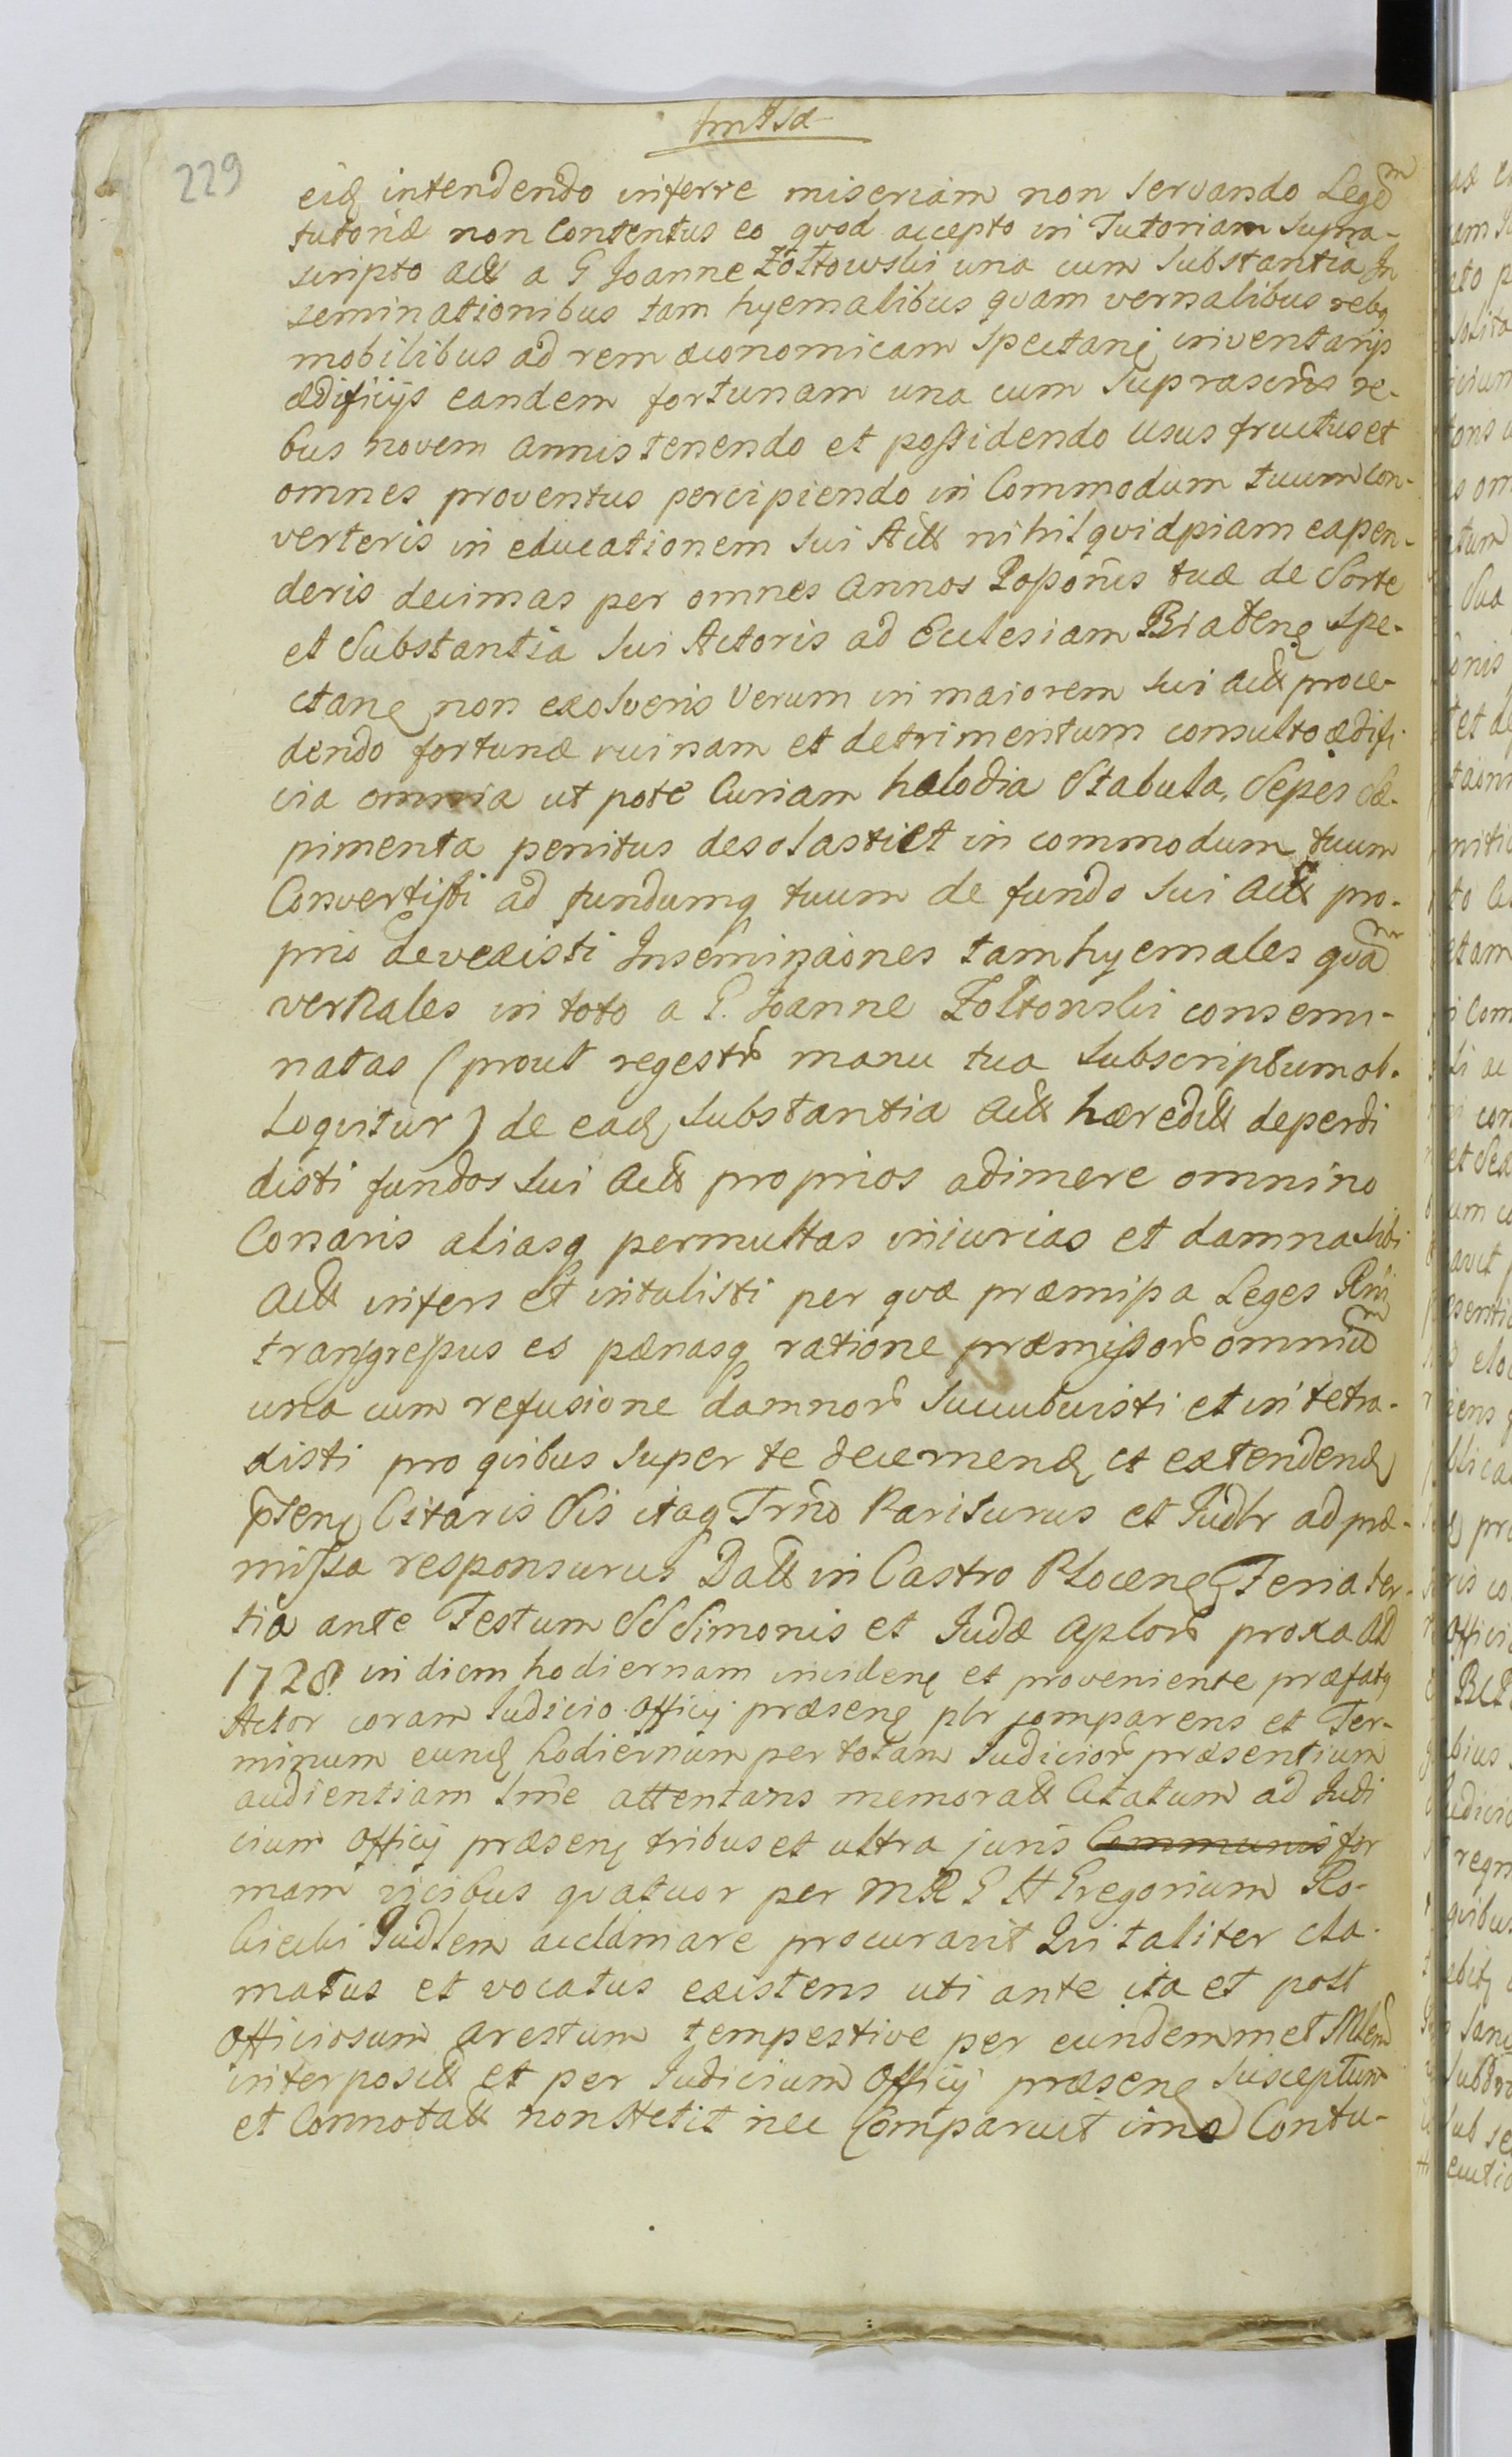 229
eid intendendo inferre miseriam non servando Legem
tutoriæ non Contentus eo quod accepto in Tutoriam supra-
scripto act a G Joanne Żołtowski una cum Substantia In
seminationibus tam hyemalibus quam vernalibus rebq
mobilibus ad rem æconomicam Spectanę inventarijs
ædificijs eandem fortunam una cum Suprascris re-
bus novem annis tenendo et possidendo usus fructus et
omnes proventus percipiendo in Commodum tuum con-
verteris in educationem sui Act nihil quidpiam expen-
deris decimas per omnes annos Posponis tuæ de Sorte
et Substantia sui Actoris ad Ecclesiam Białenę Spe-
ctanę non exolveris Verum in maiorem sui act proce-
dendo fortunæ ruinam et detrimentum consulto ædifi-
cia omnia ut pote Curiam halodia Stabula, Sepes Sæ-
pimenta penitus desolasti et in commodum tuum
Convertisti ad fundumq tuum de fundo sui act pro-
prio devexisti Inseminaones tam hyemales quam
vernales in toto a G. Joanne Żołtowski consemi-
natas (prout regestr manu tua subscriptum ob-
loquitur) de ead substantia act hæredit deperdi
disti fundos sui act proprios adimere omnino
Conaris aliasq permultas iniurias et damna sibi
act infers et intulisti per quæ præmissa Leges Rni
transgressus es pænasq ratione præmissor omnium
una cum refusione damnor succubuisti et in te tra-
xisti pro quibus super te decernend et extendend
pntenę Citaris Sis itaq Trno Pariturus et Judlr ad præ-
missa responsurus Datt in Castro Plocenę Feria ter-
tia ante Festum SS Simonis et Judæ aplor proxa AD
1728. in diem hodiernam incidenę et proveniente præfatq
Actor coram Judicio Officij præsenę plr comparens et Ter-
minum eund hodiernum per totam Judicior præsentium
audientiam tme attentans memoratt Citatum ad Judi
cium Officij præsenę tribus et ultra juris Communis for
mam vicibus quatuor per MR G H Gregorium Ro-
Judlem acclamare procuravit Qui taliter cla-
matus et vocatus existens uti ante ita et post
Officiosum arestum tempestive per eundemmet Mlem
interposit et per Judicium Officij præsenę susceptum
et Connotatt non stetit nec Comparuit imo Contu-